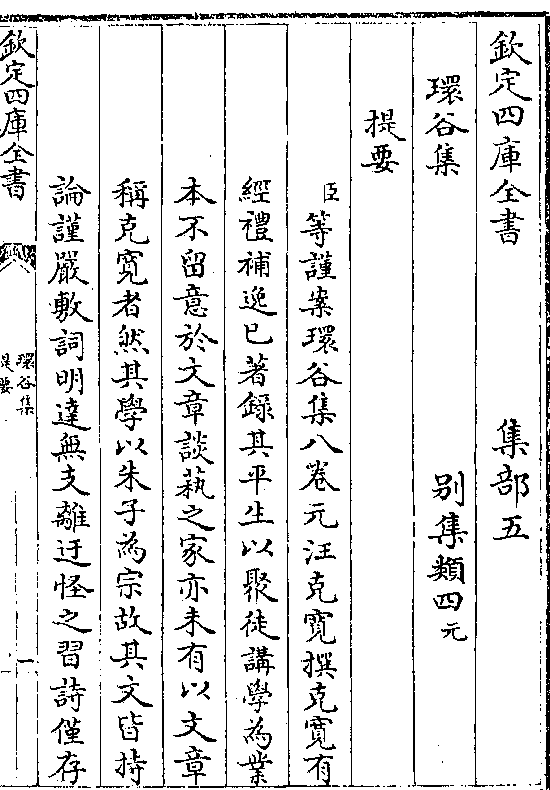 欽定四庫全書　集部五
環谷集　別集類四元
提要
臣等謹案環谷集八卷元汪克寛撰克寛有
經禮補逸已著録其平生以聚徒講學為業
本不留意於文章談蓺之家亦未有以文章
稱克寛者然其學以朱子為宗故其文皆持
論謹嚴敷詞明達無支離迂怪之習詩僅存
欽定四庫全書
環谷集
提要
一